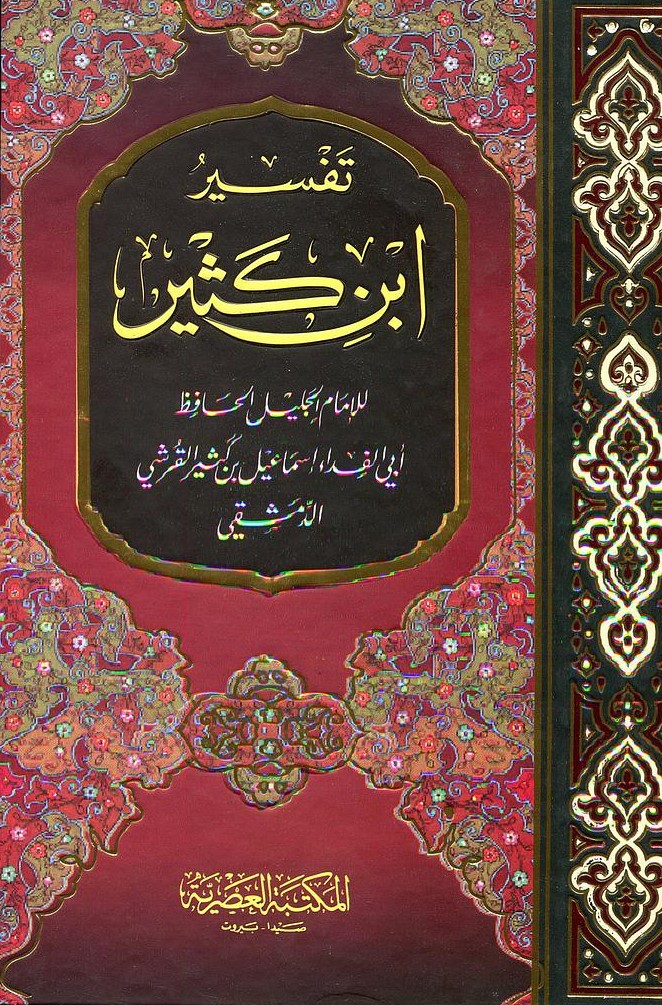 تَفْسِيرُ
ابْنِ كَثِير
للإمَام الجَليْل الحَافِظ
أبي الفِداء اسمَاعيل بن كَثير القُرَشي
الدِّمَشقِي
المكتبة العصريّة
صَيدا - بَيروت